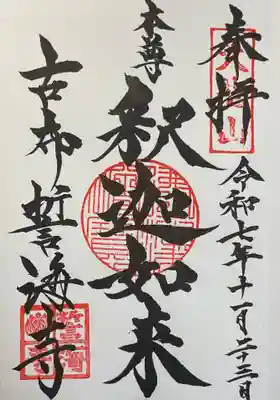 奉拝
令和七年十一月二十三日
本尊
釈迦如来
古布 誓海寺